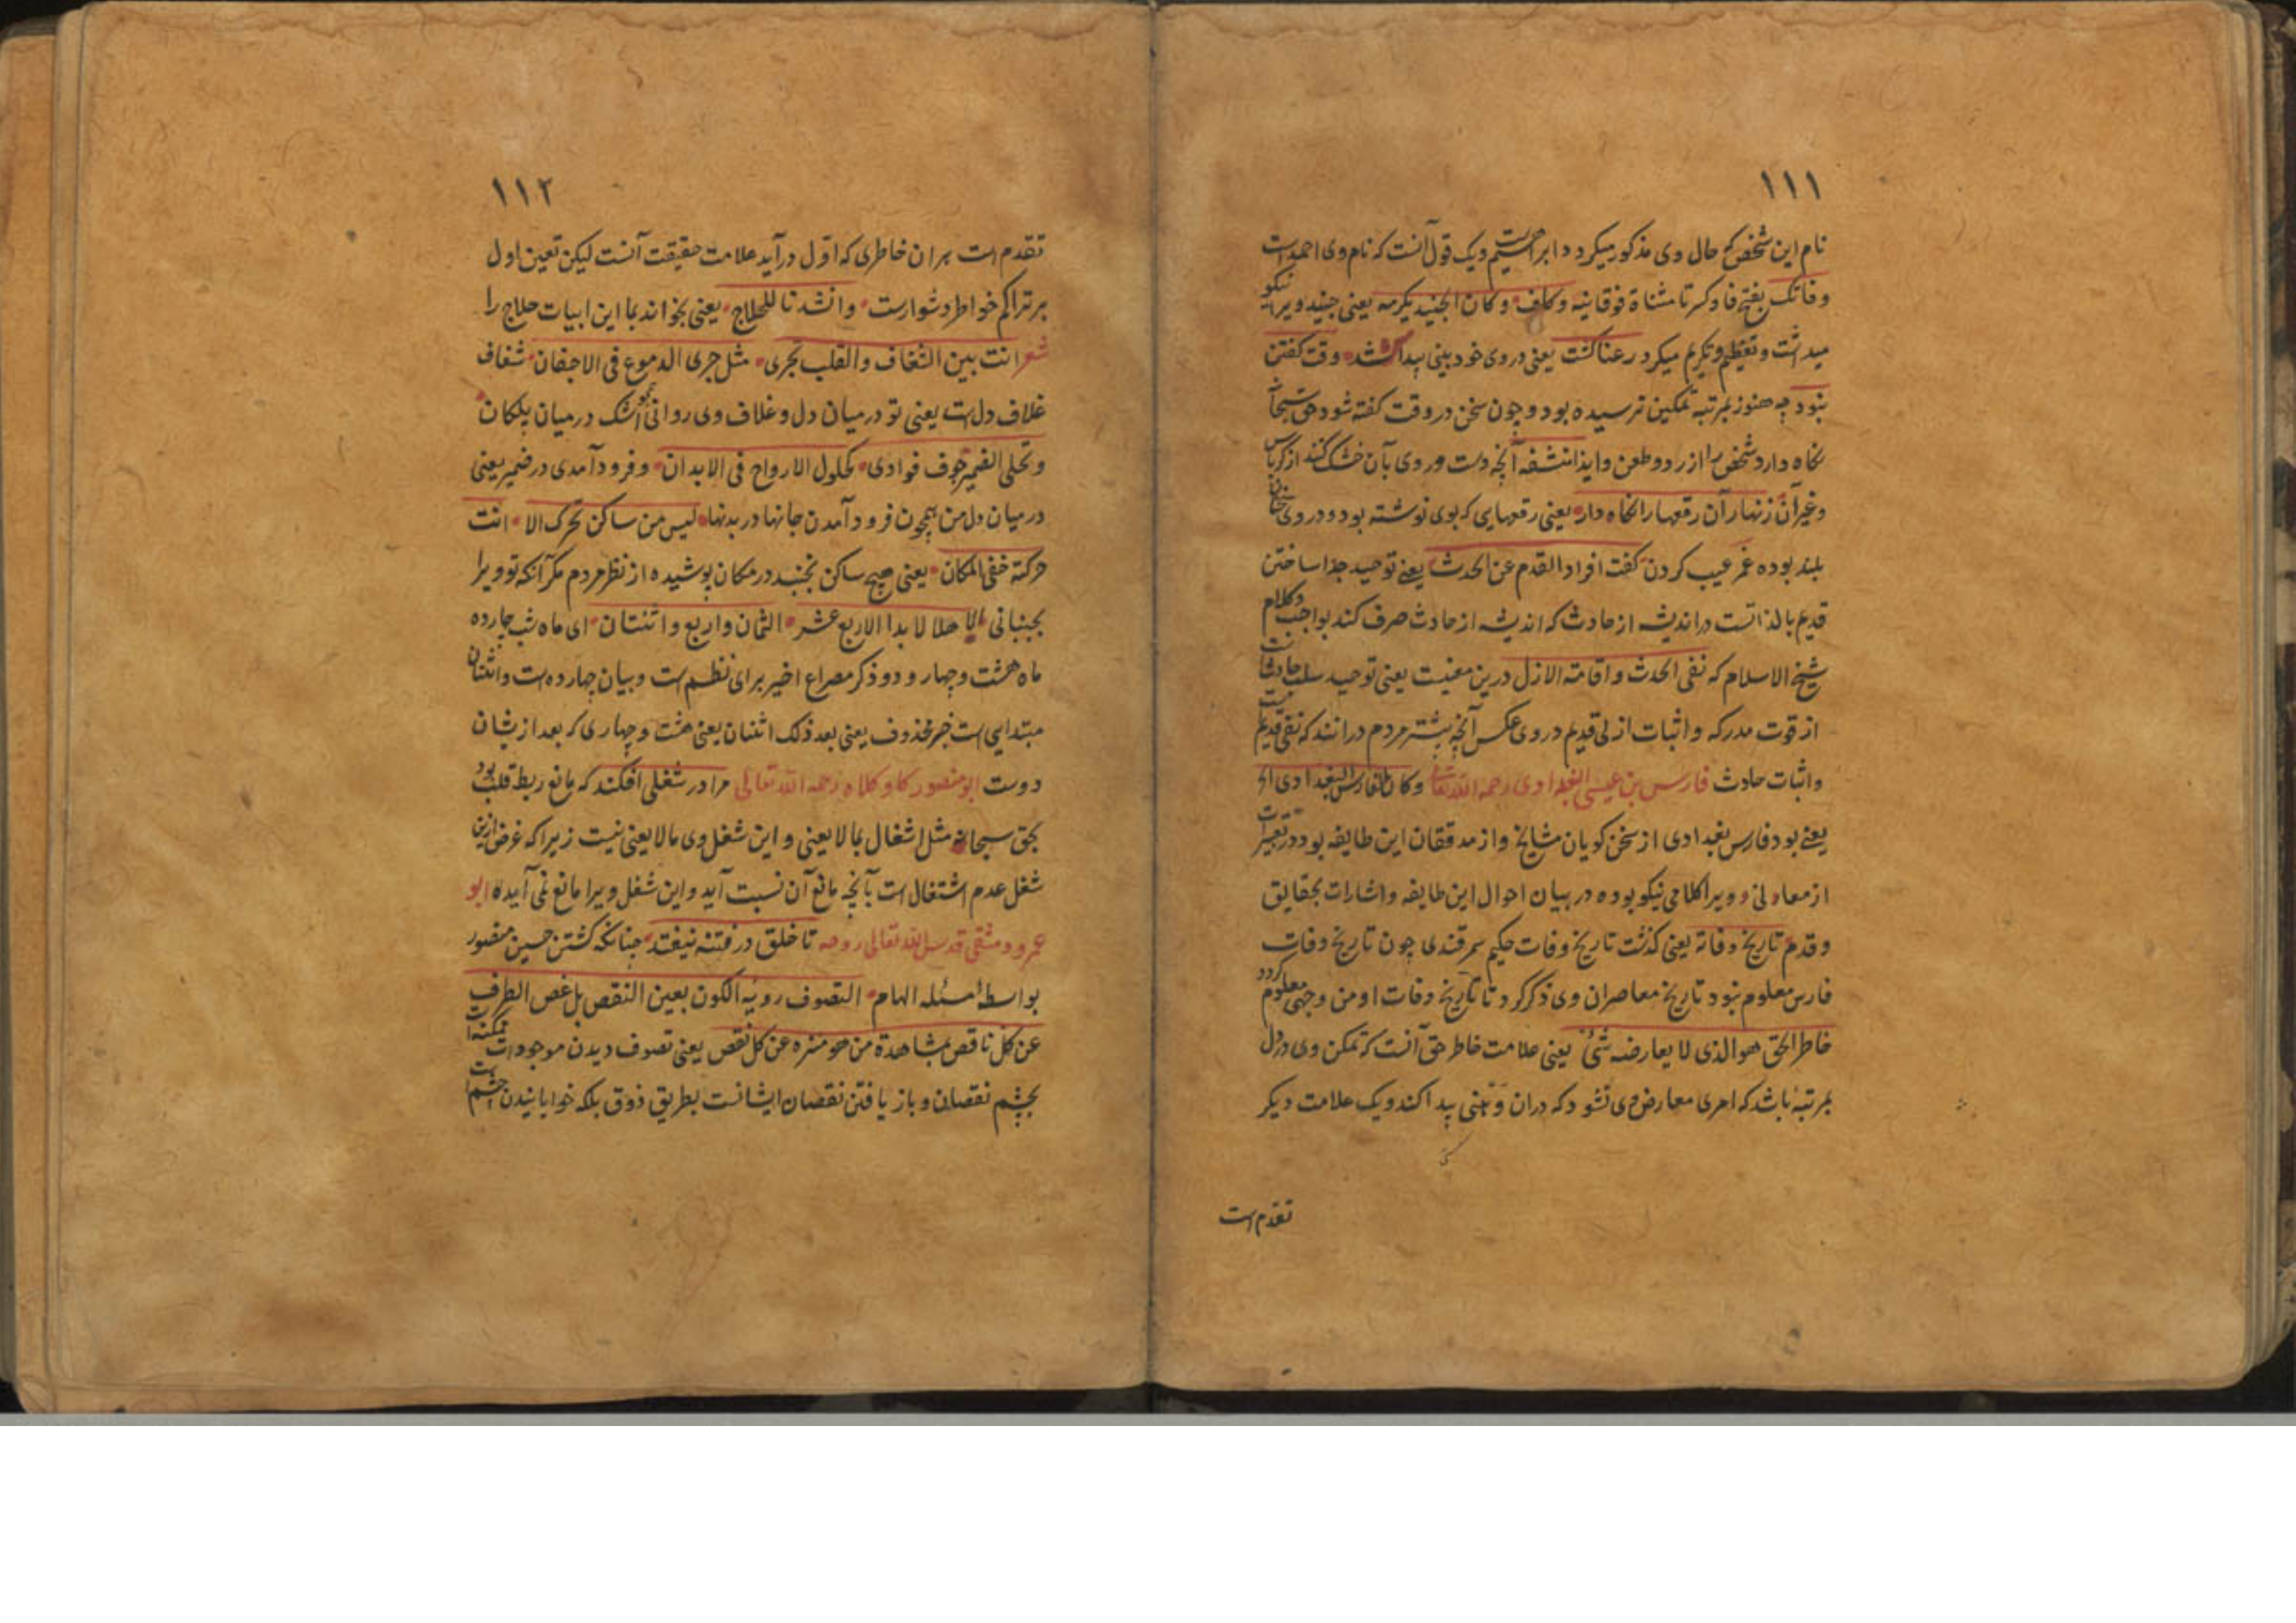 ۱۱۱
نام این شخص که حال وی مذکور میگردد ابراهیم است و یک قول آنست که نام وی احمد است
و فاتک بفتح فا و کسر تا مثناة فوقانیه و کاف و کان الجنید یکرمه یعنی جنید ویرا نیکو
میداشت و تعظیم و تکریم میکرد رعنا گشت یعنی در وی خود بینی پیدا شد وقت گفتن
نبود چه هنوز بمرتبه تمکین نرسیده بود و چون سخن در وقت گفته شود حق سبحانه
نگاه دارد شخص را از رد و طعن وایذا منشفه آنچه دست و روی بآن خشک کنند از کرباس
و غیر آن زنهار آن رقعها را نگاه دار یعنی رقعهایی که بوی نوشته بود و در وی سخنان
بلند بوده غمز عیب کردن گفت افراد القدم عن الحدث یعنی توحید جدا ساختن
قدیم بالذاتست در اندیشه از حادث که اندیشه از حادث صرف کند بواجب و کلام
شیخ الاسلام که نفی الحدث و اقامة الازل درین معنیست یعنی توحید سلب حادثانست
از قوت مدرکه و اثبات ازلی قدیم در وی عکس آنچه بیشتر مردم درانند که نفی قدیمست
و اثبات حادث فارس بن عیسی البغدادی رحمه الله تعالی و کان الفارس البغدادی الخ
یعنی بود فارس بغدادی از سخن گویان مشایخ و از مدققان این طایفه بود در تعبیرات
از معانی و ویرا کلامی نیکو بوده در بیان احوال این طایفه و اشارات بحقایق
و قدم تاریخ وفاته یعنی گذشت تاریخ وفات حکیم سمرقندی چون تاریخ وفات
فارس معلوم نبود تاریخ معاصران وی ذکر کرد تا تاریخ وفات او من وجهی معلوم گردد
خاطر الحق هو الذی لا یعارضه شئ یعنی علامت خاطر حق آنست که تمکن وی در دل
بمرتبهٔ باشد که امری معارض وی نشود که دران وهنی پیدا کند و یک علامت دیگر
تقدم است
۱۱۲
تقدم است بران خاطری که اول در آید علامت حقیقت آنست لیکن تعین اول
بر تراکم خواطر دشوارست و انشدنا للحلاج یعنی بخواند بما این ابیات حلاج را
شعر انت بین الشغاف والقلب تجری مثل جری الدموع فی الاجفان شغاف
غلاف دل است یعنی تو درمیان دل و غلاف وی روانی همچو اشک درمیان پلکان
و تحلی الضمیر جوف فوادی کحلول الارواح فی الابدان و فرود آمدی در ضمیر یعنی
درمیان دل من همچون فرود آمدن جانها در بدنها لیس من ساکن تحرک الا انت
حرکته خفی المکان یعنی هیچ ساکن نجنبد در مکان پوشیده از نظر مردم مگر آنکه تو ویرا
بجنبانی یا هلالا بدا لاربع عشر الثمان واربع واثنتان ای ماه شب چارده
ماه هشت و چهار و دو ذکر مصراع اخیر برای نظم است و بیان چهارده است و اثنتان
مبتدایی است خبر محذوف یعنی بعد ذلک اثنتان یعنی هشت و چهاری که بعد ازیشان
دوست ابو منصور کاو کلاه رحمه الله تعالی مرا در شغلی افکند که مانع ربط قلب بود
بحق سبحانه مثل اشغال بما لا یعنی و این شغل وی ما لا یعنی نیست زیرا که غرض ازین
شغل عدم اشتغال است بآنچه مانع آن نسبت آید و این شغل ویرا مانع نمی آیده ابو
عمرو دمشقی قدس الله تعالی روحه تا خلق در فتنه نیفتند چنانکه کشتن حسین منصور
بواسطه امسئله الهام التصوف رویه الکون بعین النقص بل غض الطرف
عن کل ناقص بمشاهدة من هو منزه عن کل نقص یعنی تصوف دیدن موجودات
بچشم نقصان و باز یافتن نقصان ایشانست بطریق ذوق بلکه خوابانیدن چشم است